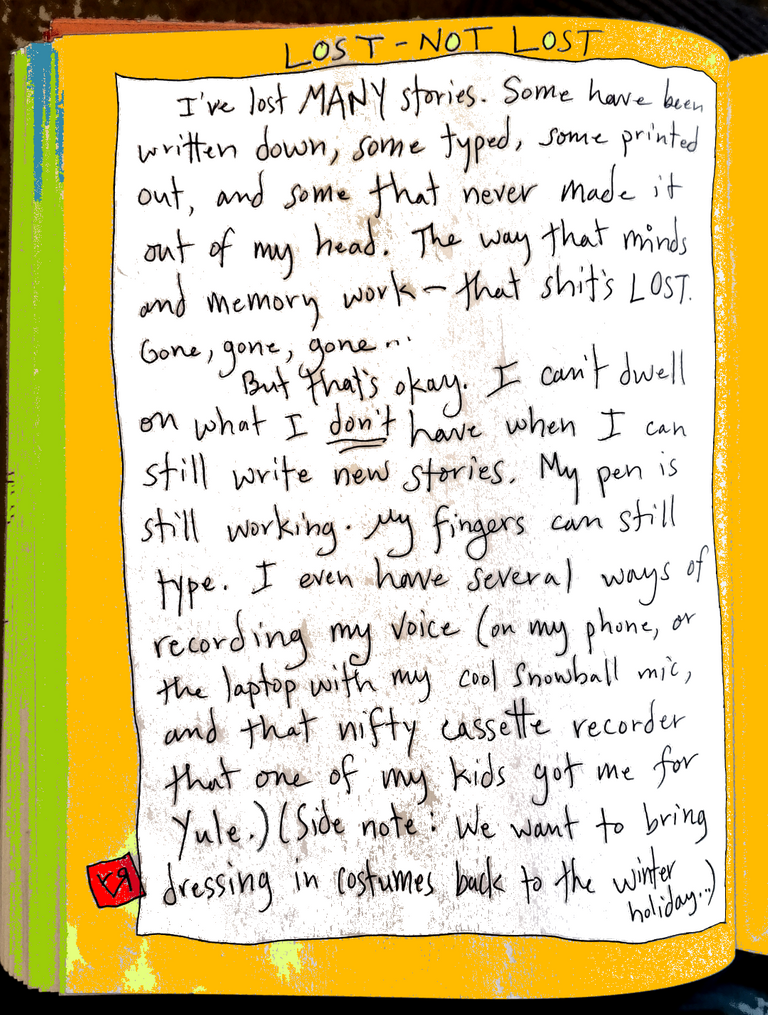 LOST - NOT LOST
I've lost MANY stories. Some have been
written down, some typed, some printed
out, and some that never made it
out of my head. The way that minds
and memory work - that shit's LOST.
Gone, gone, gone...
But that's okay. I can't dwell
on what I don't have when I can
still write new stories. My pen is
still working. My fingers can still
type. I even have several ways of
recording my voice (on my phone, or
the laptop with my cool Snowball mic,
and that nifty cassette recorder
that one of my kids got me for
Yule.) (Side note: We want to bring
dressing in costumes back to the winter
holiday...)